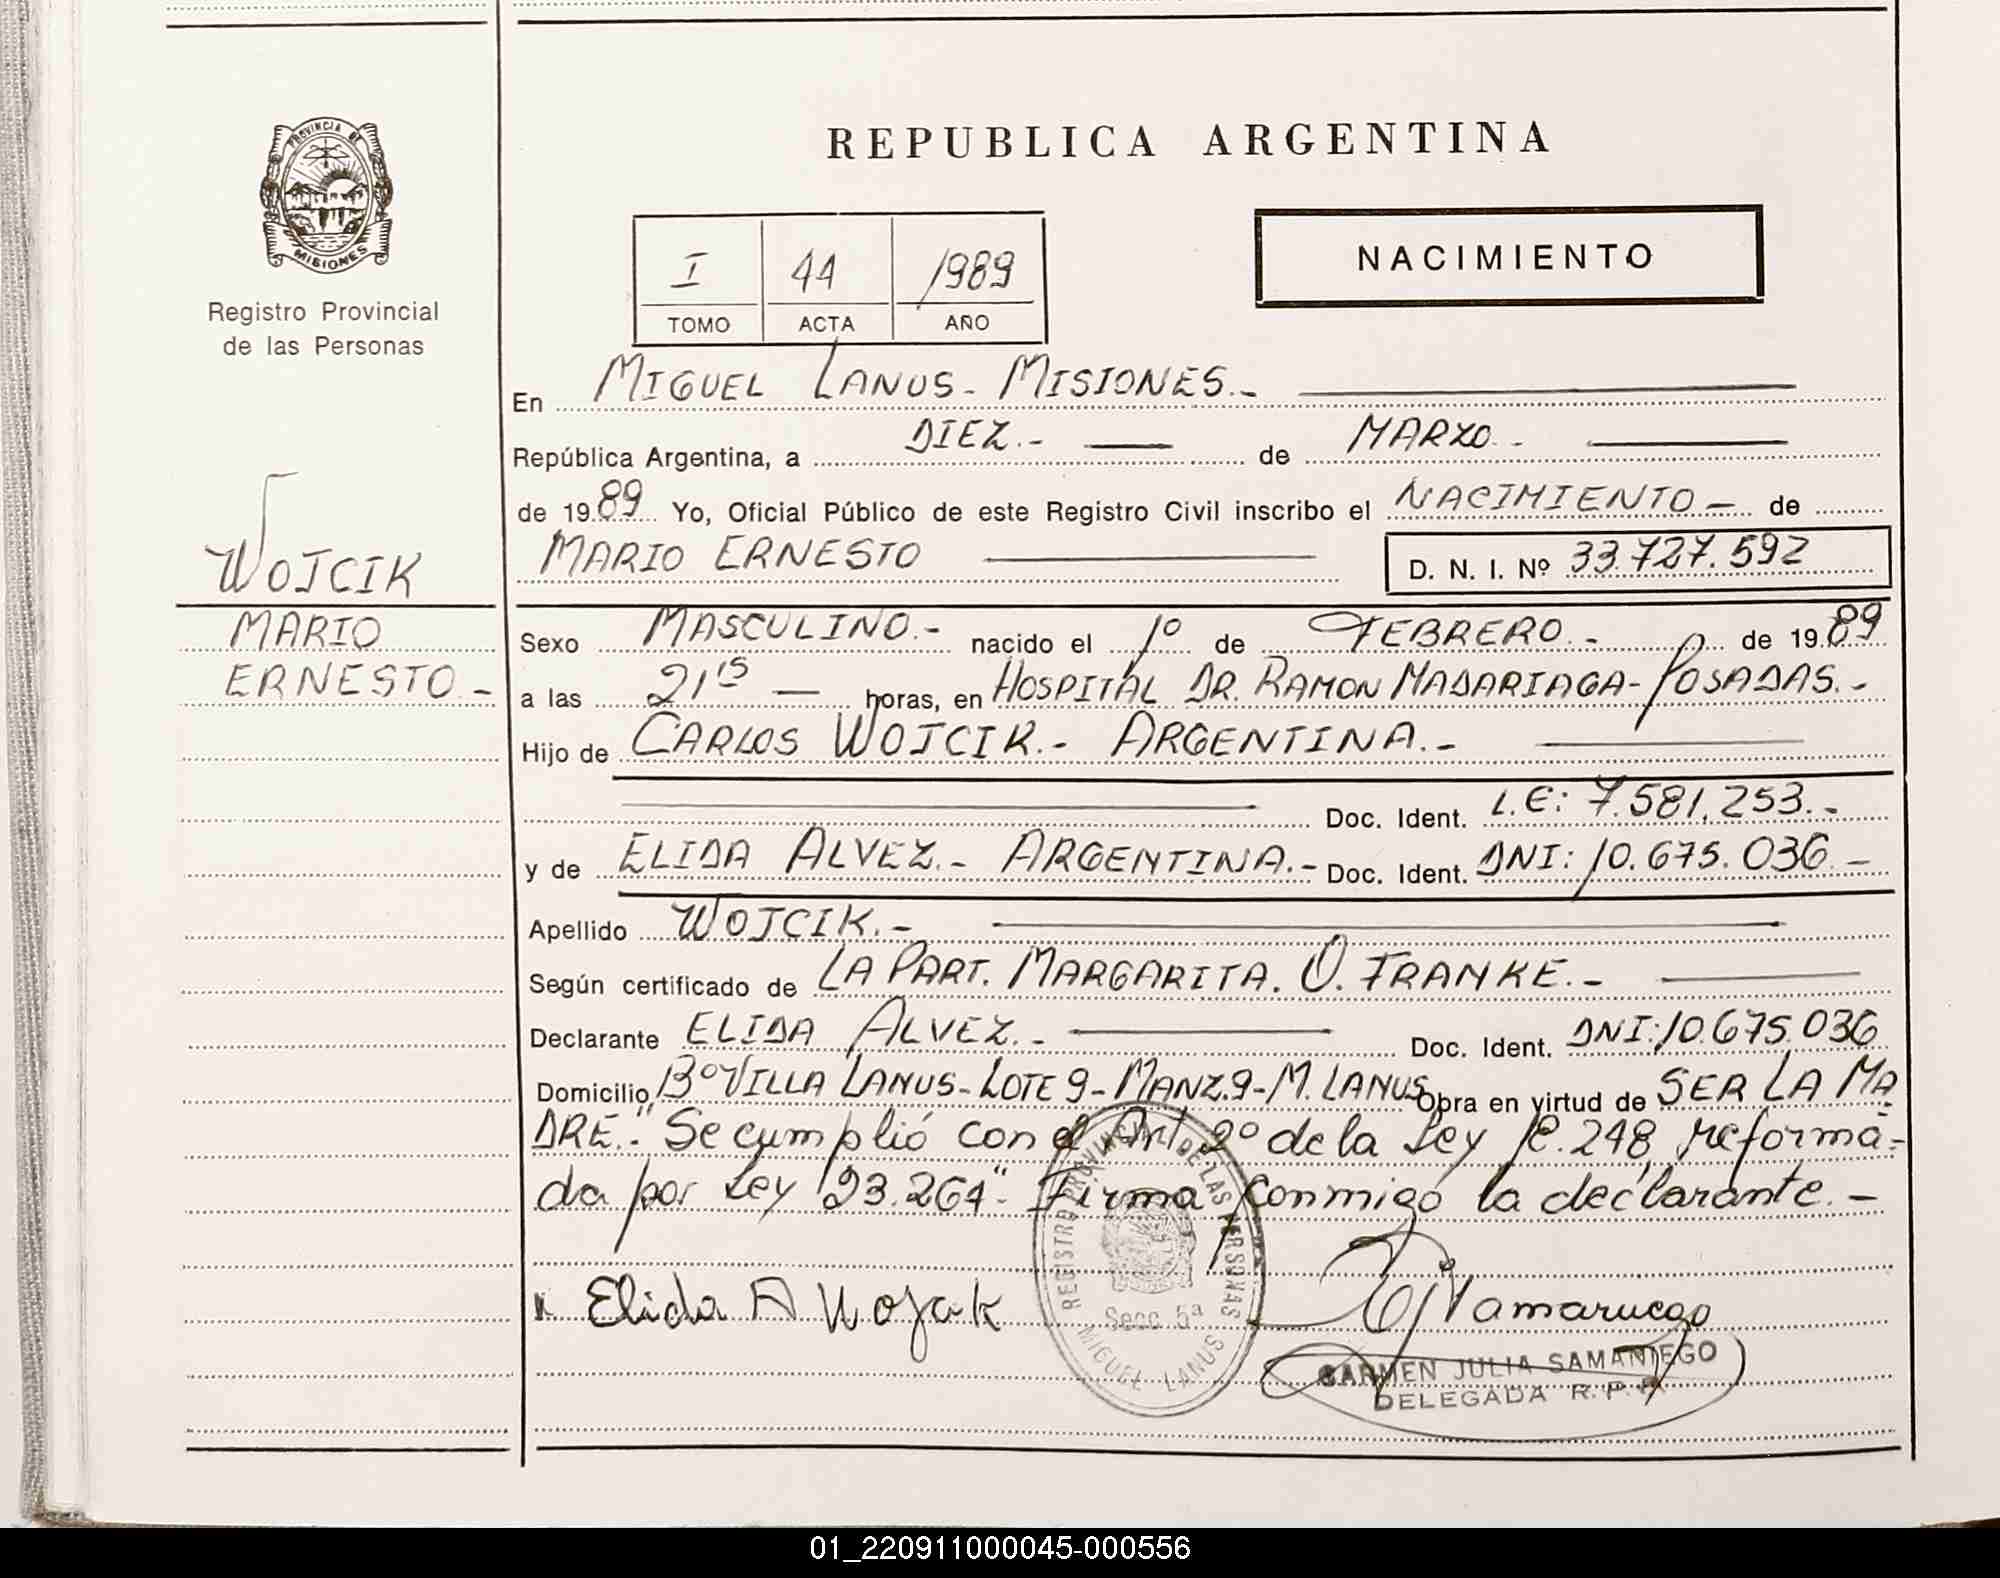 PROVINCIA DE
MISIONES
Registro Provincial
de las Personas
REPUBLICA ARGENTINA
NACIMIENTO
I 44 1989
TOMO ACTA AÑO
En MIGUEL LANUS - MISIONES.-
República Argentina, a DIEZ.- de MARZO.-
de 1989 Yo, Oficial Público de este Registro Civil inscribo el NACIMIENTO - de
MARIO ERNESTO D. N. I. Nº 33.727.592
WOJCIK
MARIO
ERNESTO.-
Sexo MASCULINO.- nacido el 1º de FEBRERO.- de 1989
a las 21 15 — horas, en HOSPITAL DR. RAMON MADARIAGA - POSADAS.-
Hijo de CARLOS WOJCIK.- ARGENTINA.-
Doc. Ident. L.E: 7.581.253.-
y de ELIDA ALVEZ.- ARGENTINA.- Doc. Ident. DNI: 10.675.036.-
Apellido WOJCIK.-
Según certificado de LA PART. MARGARITA. O. FRANKE.-
Declarante ELIDA ALVEZ.- Doc. Ident. DNI: 10.675.036
Domicilio Bº VILLA LANUS - LOTE 9 - MANZ. 9 - M. LANUS Obra en virtud de SER LA MA
DRE.- "Se cumplió con el Art 2º de la Ley 18.248, reforma-
da por Ley 23.264". Firma conmigo la declarante.-
Elida A Wojcik
REGISTRO PROVINCIAL DE LAS PERSONAS
Secc. 5ª
MIGUEL LANUS
CARMEN JULIA SAMANIEGO
DELEGADA R. P. P.
01_220911000045-000556